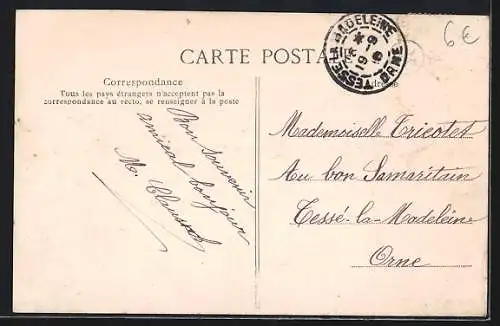 6€
CARTE POSTA
TESSÉ-LA-MADELEINE
ORNE
Correspondance
Tous les pays étrangers n'acceptent pas la
correspondance au recto, se renseigner à la poste
Bon souvenir
amical bonjour
M.
Mademoiselle Tricotet
Au bon Samaritain
Tessé-la-Madeleine
Orne